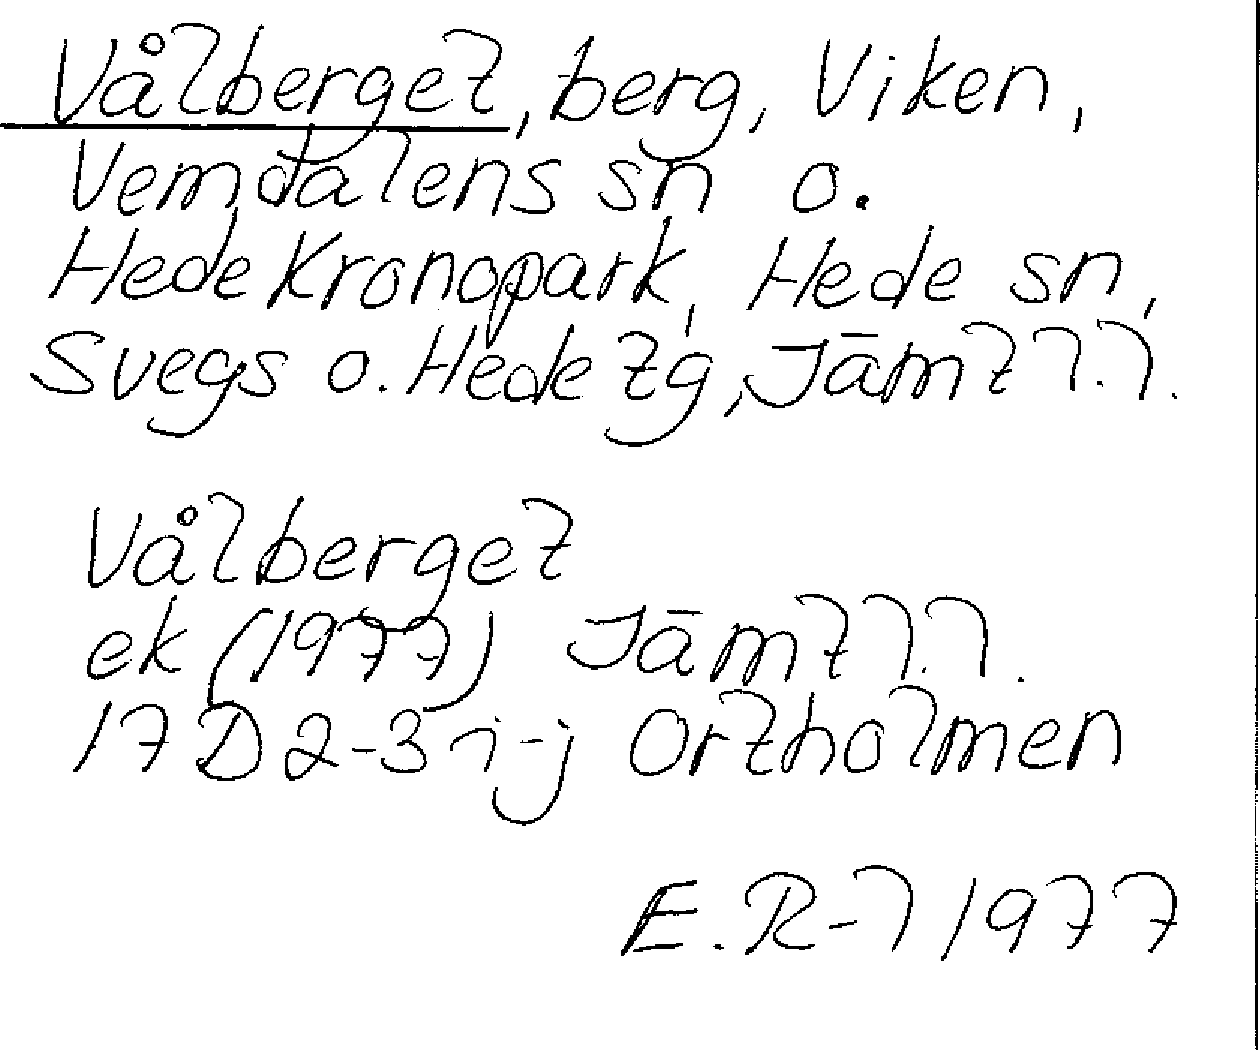 Vålberget, berg, Viken,
Vemdalens sn o.
Hede Kronopark, Hede sn,
Svegs o. Hede tg, Jämtl.l.
Vålberget
ek (1977) Jämtl.l.
17 D 2-3 i-j Ortholmen
E.R-l 1977